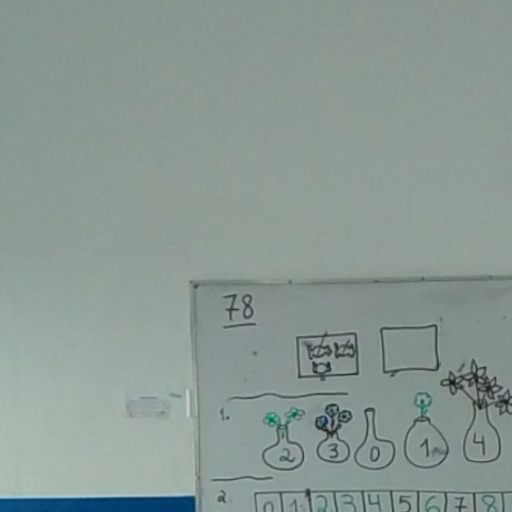 78
1.
2 3 0 1 4
2.
0 1 2 3 4 5 6 7 8